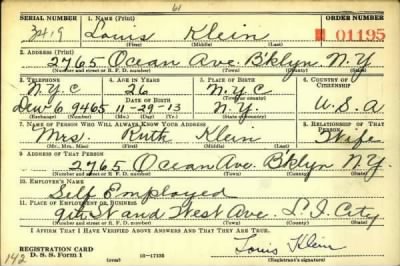 61
SERIAL NUMBER 1. NAME (Print) ORDER NUMBER
3419 Louis Klein 01195
(First) (Middle) (Last)
2. ADDRESS (Print)
2765 Ocean Ave. B'klyn. N.Y.
(Number and street or R. F. D. number) (Town) (County) (State)
3. TELEPHONE 4. AGE IN YEARS 5. PLACE OF BIRTH 6. COUNTRY OF CITIZENSHIP
N.Y.C 26 N.Y.C
DATE OF BIRTH
Dew. 6 9465 11-29-13 N.Y. U.S.A
(Exchange) (Number) (Mo.) (Day) (Yr.) (State or country)
7. NAME OF PERSON WHO WILL ALWAYS KNOW YOUR ADDRESS 8. RELATIONSHIP OF THAT PERSON
Mrs. Ruth Klein Wife
(Mr., Mrs., Miss) (First) (Middle) (Last)
9. ADDRESS OF THAT PERSON
2765 Ocean Ave. Bklyn N.Y.
(Number and street or R. F. D. number) (Town) (County) (State)
10. EMPLOYER'S NAME
Self Employed
11. PLACE OF EMPLOYMENT OR BUSINESS
9th St and West Ave. L I. City
(Number and street or R. F. D. number) (Town) (County) (State)
I AFFIRM THAT I HAVE VERIFIED ABOVE ANSWERS AND THAT THEY ARE TRUE.
REGISTRATION CARD
D. S. S. Form 1 16-17135 Louis Klein
(Registrant's signature)
142